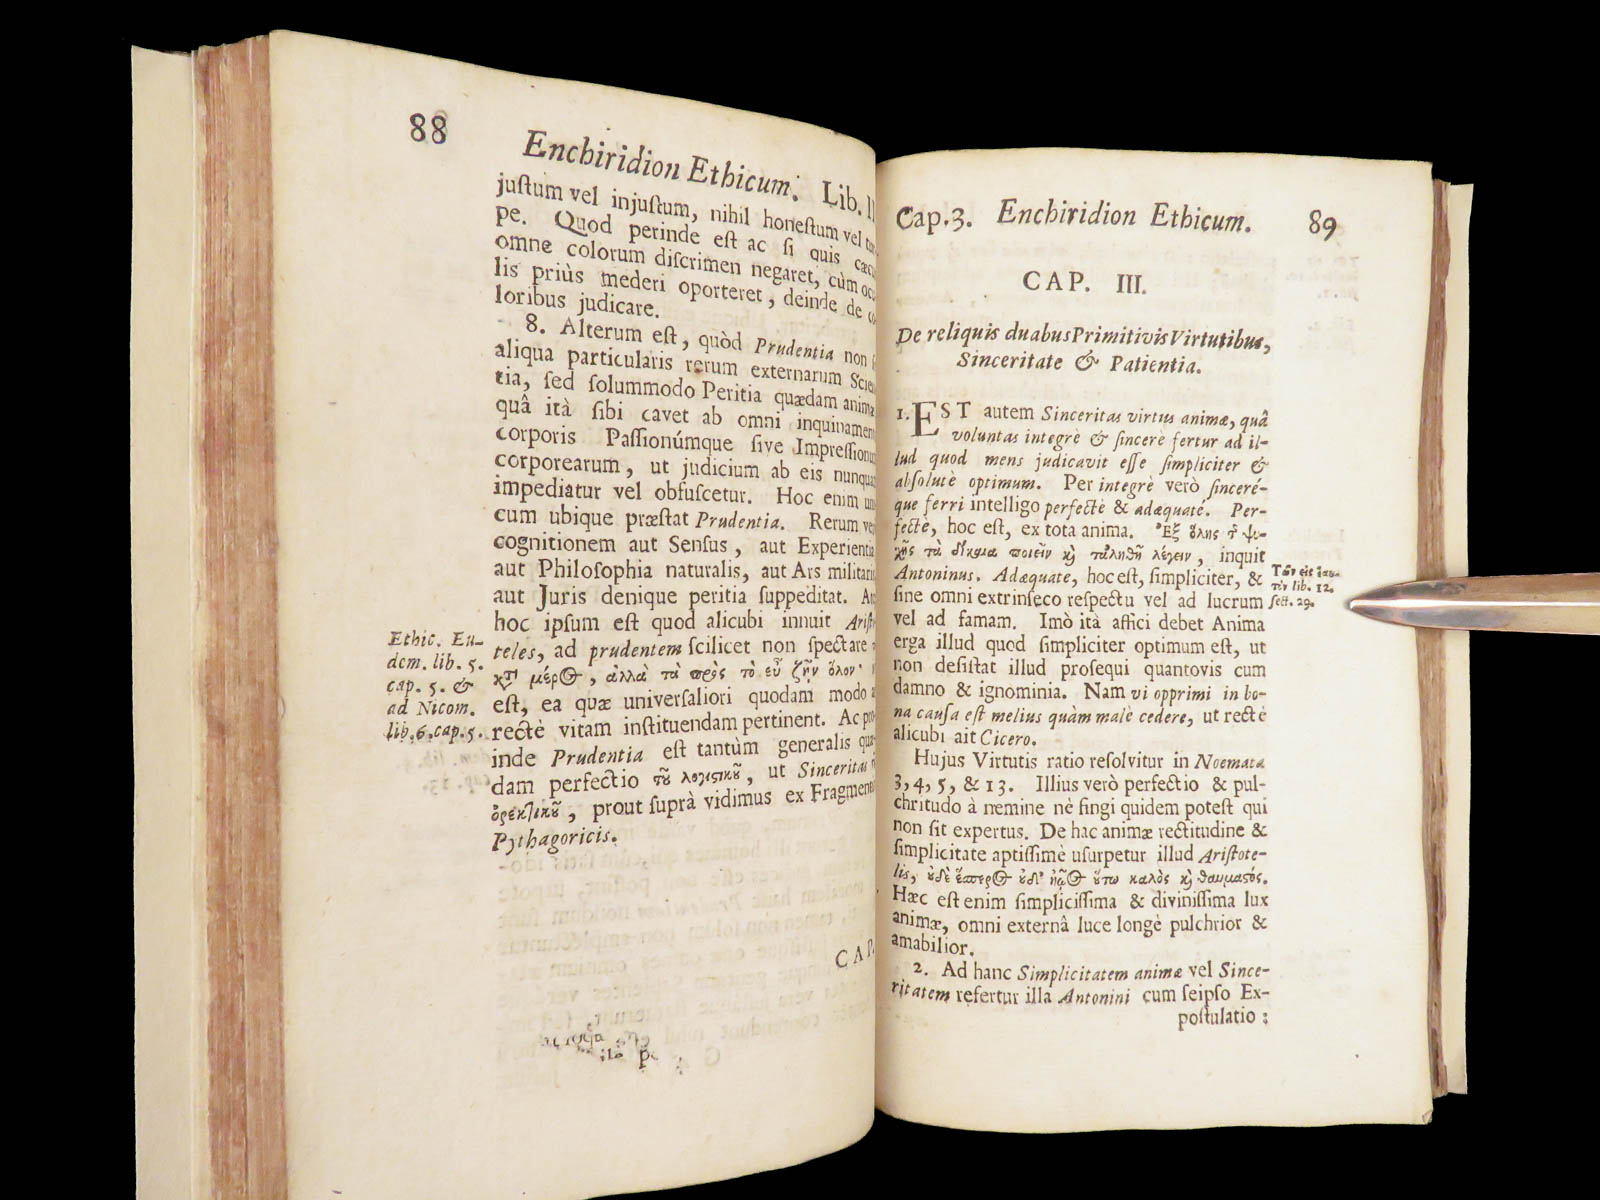 88
Enchiridion Ethicum. Lib. II
juſtum vel injuſtum, nihil honeſtum vel tur-
pe. Quod perinde eſt ac ſi quis cæcu
omne colorum diſcrimen negaret, cùm ocu
lis priùs mederi oporteret, deinde de co
loribus judicare.
8. Alterum eſt, quòd Prudentia non
aliqua particularis rerum externarum Scien
tia, ſed ſolummodo Peritia quædam animæ
quâ ità ſibi cavet ab omni inquinamen
corporis Paſſionúmque ſive Impreſſionu
corporearum, ut judicium ab eis nunqua
impediatur vel obfuſcetur. Hoc enim un
cum ubique præſtat Prudentia. Rerum ve
cognitionem aut Senſus, aut Experientia
aut Philoſophia naturalis, aut Ars militaris
aut Juris denique peritia ſuppeditat. At
hoc ipſum eſt quod alicubi innuit Ariſto
teles, ad prudentem ſcilicet non ſpectare
κτ μέρ⊙, ἀλλὰ τὰ πρὸς τὸ εὖ ζῆν ὅλον·
eſt, ea quæ univerſaliori quodam modo a
rectè vitam inſtituendam pertinent. Ac pro
inde Prudentia eſt tantùm generalis quæ
dam perfectio τȣ͂ λογιστικȣ͂, ut Sinceritas
ὀρεκτικȣ͂, prout ſuprà vidimus ex Fragmen
Pythagoricis.
Ethic. Eu-
dem. lib. 5.
cap. 5. &
ad Nicom.
lib. 6. cap. 5.
CAP.
Cap. 3. Enchiridion Ethicum. 89
CAP. III.
De reliquis duabus Primitivis Virtutibus,
Sinceritate & Patientia.
1. EST autem Sinceritas virtus animæ, quâ
voluntas integrè & ſincerè fertur ad il-
lud quod mens judicavit eſſe ſimpliciter &
abſolutè optimum. Per integrè verò ſinceré-
que ferri intelligo perfectè & adæquatè. Per-
fectè, hoc eſt, ex tota anima. Ἐξ ὅλης τ ψυ-
χῆς τὰ δίκαια ποιεῖν ϗ τἀληθῆ λέγειν, inquit
Antoninus. Adæquate, hoc eſt, ſimpliciter, &
ſine omni extrinſeco reſpectu vel ad lucrum
vel ad famam. Imò ità affici debet Anima
erga illud quod ſimpliciter optimum eſt, ut
non deſiſtat illud proſequi quantovis cum
damno & ignominia. Nam vi opprimi in bo-
na cauſa eſt melius quàm malè cedere, ut rectè
alicubi ait Cicero.
Τῶν εἰς ἑαυ-
τὸν lib. 12.
ſect. 29.
Hujus Virtutis ratio reſolvitur in Noemata
3, 4, 5, & 13. Illius verò perfectio & pul-
chritudo à nemine nè fingi quidem poteſt qui
non ſit expertus. De hac animæ rectitudine &
ſimplicitate aptiſſimè uſurpetur illud Ariſtote-
lis, ȣ̓δὲ ἕσπερ⊙ ȣ̓δ' ἠῷ⊙ ȣ̔́τω καλὸς ϗ θαυμαστός.
Hæc eſt enim ſimpliciſſima & diviniſſima lux
animæ, omni externâ luce longè pulchrior &
amabilior.
2. Ad hanc Simplicitatem animæ vel Since-
ritatem refertur illa Antonini cum ſeipſo Ex-
poſtulatio: